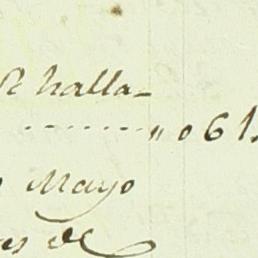 halla_
-------- „ 0 6 1.
Mayo
es de